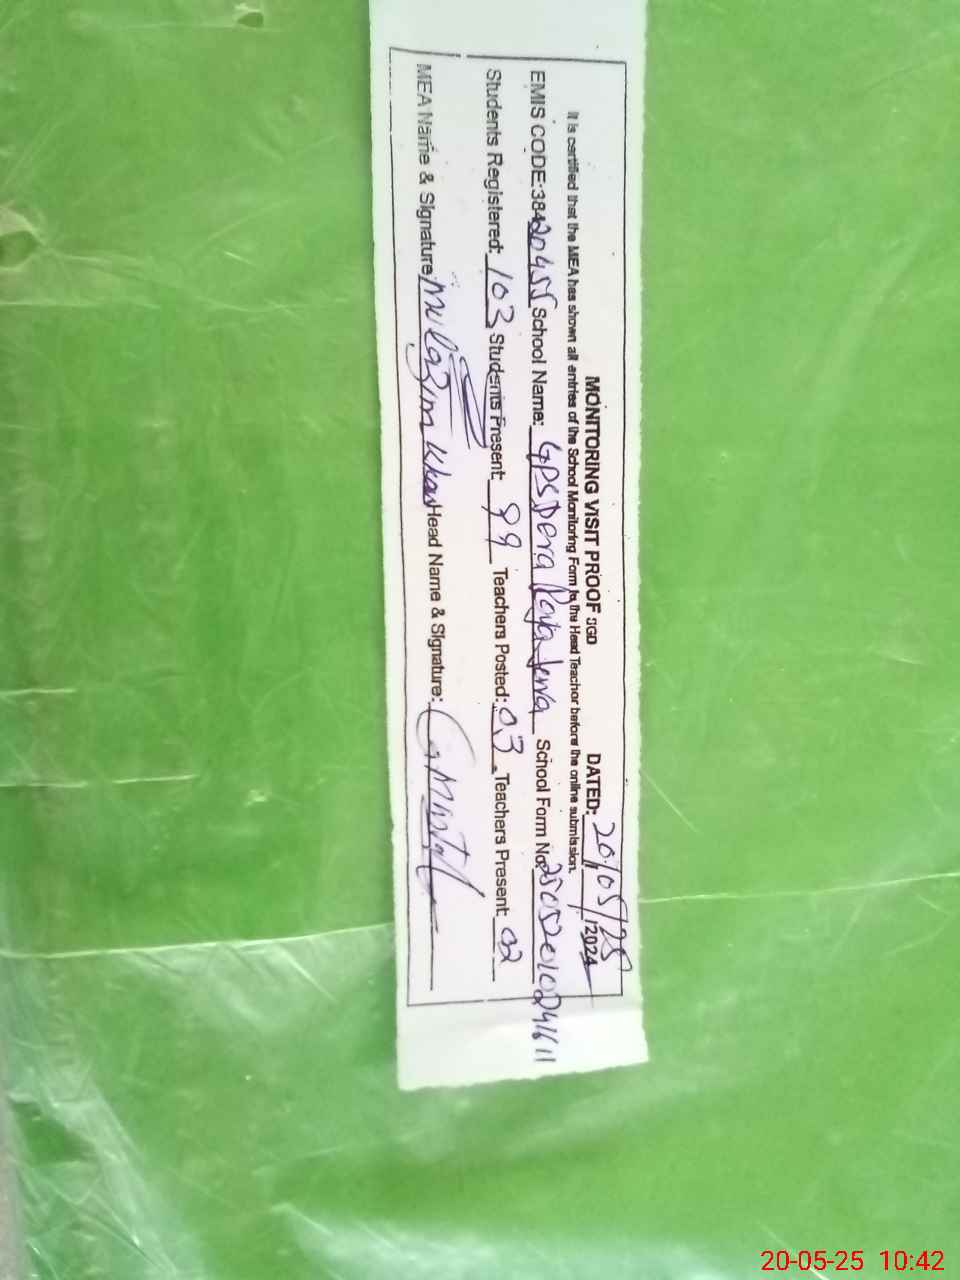 MONITORING VISIT PROOF SGD DATED: 20/05/25 /2024
It is certified that the MEA has shown all entries of the School Monitoring Form to the Head Teacher before the online submission.
EMIS CODE:38420455 School Name: GPS Dera School Form No. 25052010241611
Students Registered: 103 Students Present: 99 Teachers Posted: 03 Teachers Present: 02
MEA Name & Signature Mulazim Khan Head Name & Signature:
20-05-25 10:42